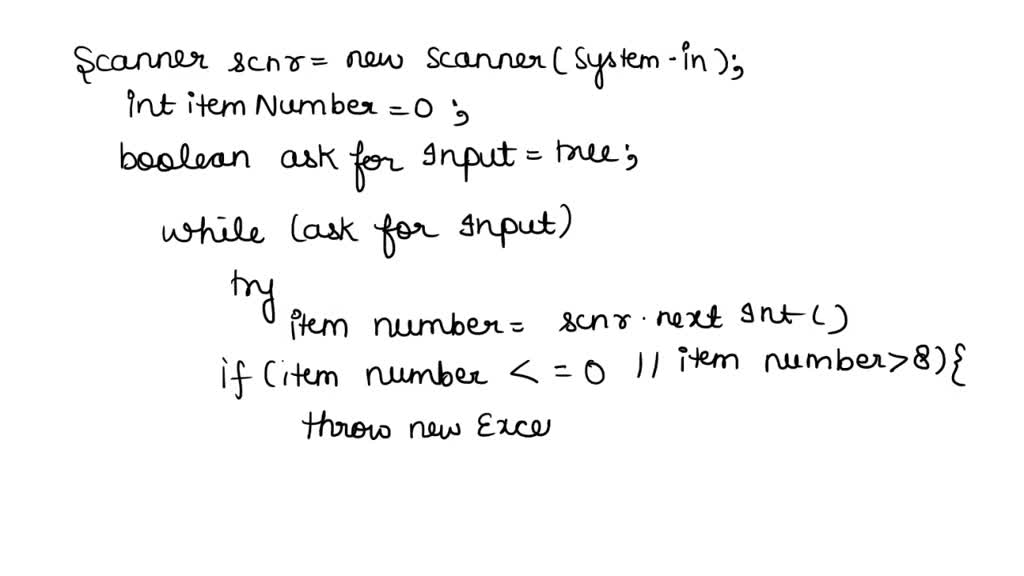 Scanner scnr = new Scanner (System.in);
int item Number = 0 ;
boolean ask for Input = true;
while (ask for Input)
try
item number = scnr.next Int ()
if (item number < = 0 || item number > 8) {
throw new Exce